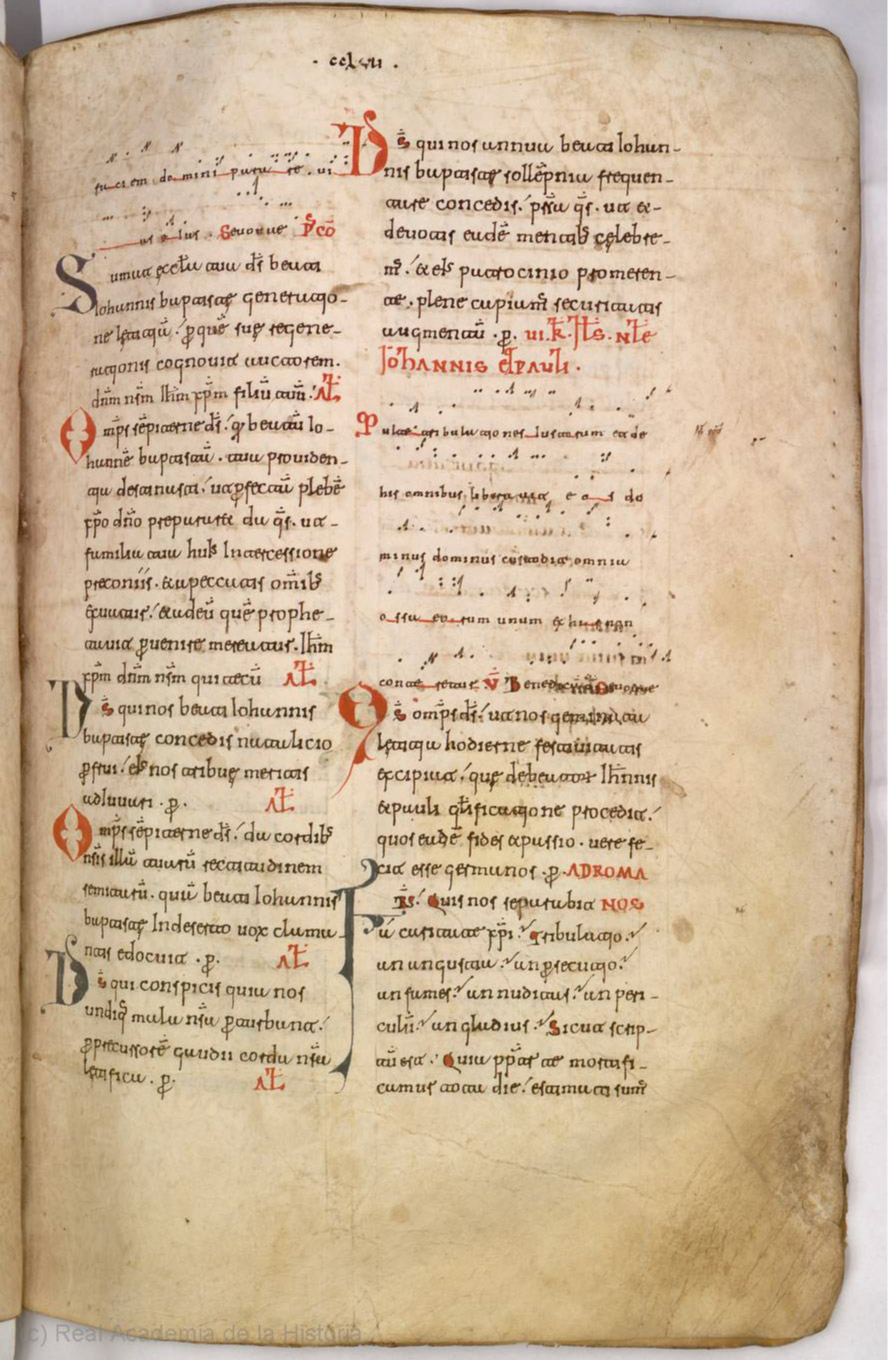 · cclvii ·
faciem domini parare vi
as eius . Seuouae p̄cō
Sumat eccl̄a tua ds̄ beati
Iohannis baptiste generatio-
ne letitiā . p̄ quē sue regene-
rationis cognovit auctorem.
dn̄m nsm̄ ihm̄ xp̄m filiū tuū . AL
Omp̄s sēpiterne ds̄ . q̄ beatū io-
hannē baptistā . tua providen-
tia destinasti . ut p̄fectā plebē
xp̄o dn̄o prepararet da qs̄ . ut
familia tua huiꝰ intercessione
preconiis . & a peccatis om̄ibꝰ
exuatur . & ad eū quē prophe-
tavit p̄venire mereatur . ihm̄
xp̄m dn̄m nsm̄ qui tecū AL
Ds̄ qui nos beati iohannis
baptiste concedis natalicio
p̄frui . eiꝰ nos tribue meritis
adiuvari . p̄ . AL
Omp̄s sēpiterne ds̄ . da cordibꝰ
nsīs illā tuarū rectitudinem
semitarū . quā beati iohannis
baptiste in deserto vox clama-
ntis edocuit . p̄ . AL
Ds̄ qui conspicis quia nos
undiq̄ mala nsā p̄turbant .
p̄ precursorē gaudii corda nsā
letifica . p̄ . AL
Ds̄ qui nos annua beati iohan-
nis baptiste sollēpnia frequen-
tare concedis . p̄sta qs̄ . ut &-
devotis eadē mentibꝰ celebre-
m̄ . & eiꝰ patrocinio promeren-
te . plene capiam̄ securitatis
augmentū . p̄ . VI . K . JLS . NLE
IOHANNIS ET PAULI .
Multe tribulationes iustorum et de
his omnibus liberavit e o s do
minus dominus custodit omnia
ossa eorum unum ex his non
conteretur V̄ Benedicā
Qs̄ omp̄s ds̄ . ut nos geminata
letitia hodierne festivitatis
excipiat . que de beatorꝝ ihn̄nis
& pauli glīficatione procedit .
quos eadē fides & passio . vere fe-
cit esse germanos . p̄ . AD ROMA
FRS̄ . Quis nos separabit NOS
a caritate xp̄i . Tribulatio .
an angustia . an p̄secutio .
an fames . an nuditas . an peri-
culū . an gladius . Sicut scrip-
tū est . Quia pp̄ter te mortifi-
camur tota die . estimati sum̄